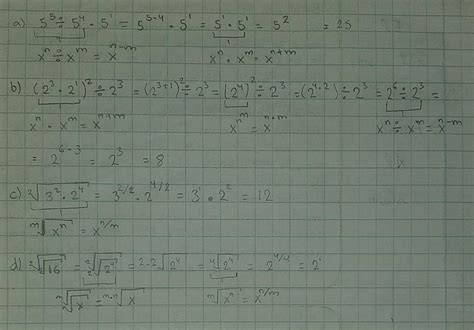 a) 5⁵ ÷ 5⁴ · 5¹ = 5⁵⁻⁴ · 5¹ = 5¹ · 5¹ = 5² = 25
xⁿ ÷ xᵐ = xⁿ⁻ᵐ xⁿ · xᵐ = xⁿ⁺ᵐ
b) (2³ · 2¹)² ÷ 2³ = (2³⁺¹)² ÷ 2³ = (2⁴)² ÷ 2³ = (2⁴·²) ÷ 2³ = 2⁶ ÷ 2³ =
xⁿ · xᵐ = xⁿ⁺ᵐ xⁿᵐ = xⁿ·ᵐ xⁿ ÷ xᵐ = xⁿ⁻ᵐ
= 2⁶⁻³ = 2³ = 8
c) ²√3² · 2⁴ = 3²ᐟ² · 2⁴ᐟ² = 3¹ · 2² = 12
ᵐ√xⁿ = xⁿ/ᵐ
d) ²√√16 = ²√²√2⁴ = ²·²√2⁴ = ⁴√2⁴ = 2⁴ᐟ⁴ = 2¹
ᵐ√ⁿ√x = ᵐ·ⁿ√x ᵐ√xⁿ = xⁿ/ᵐ